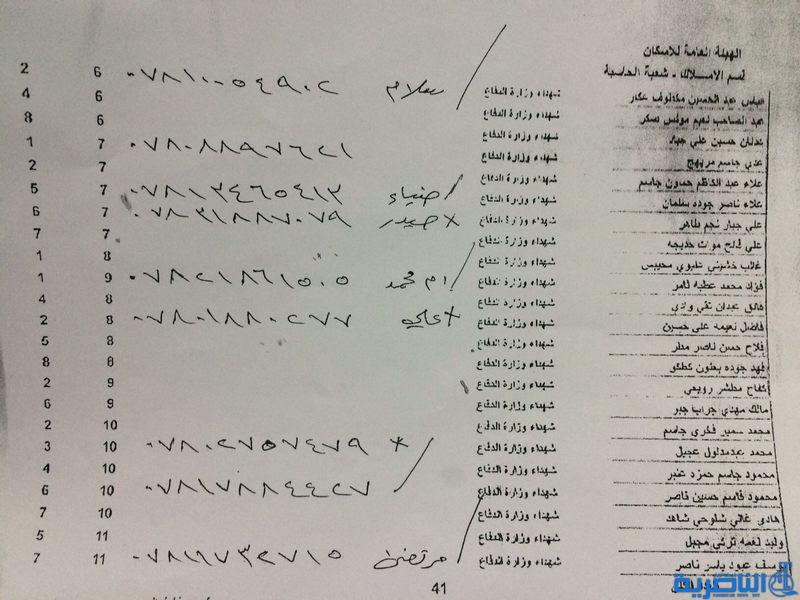 الهيئة العامة للاسكان
قسم الاملاك - شعبة الحاسبة
عباس عبد الحسين مكلوف عكار شهداء وزارة الدفاع سلام ٠٧٨١٠٠٥٤٩٠٢ 6 2
عبد الصاحب نعيم مونس عسكر شهداء وزارة الدفاع 6 4
عدنان حسين علي جبار شهداء وزارة الدفاع 6 8
عدي جاسم مريهج شهداء وزارة الدفاع ٠٧٨٠٨٨٩٧٦٢١ 7 1
علاء عبد الكاظم حمدون جاسم شهداء وزارة الدفاع 7 2
علاء ناصر جوده سلمان شهداء وزارة الدفاع ضياء ٠٧٨١٣٤٦٥٤١٣ 7 5
علي جبار نجم طاهر شهداء وزارة الدفاع حيدر ٠٧٨٣١٨٨٧٠٧٩ 7 6
علي فالح موات خديجه شهداء وزارة الدفاع 7 7
غالب شهداء وزارة الدفاع 8 1
فؤاد محمد عطيه ثامر شهداء وزارة الدفاع ام محمد ٠٧٨٢١٨٦١٥٠٥ 9 1
عبدان وادي شهداء وزارة الدفاع 8 4
فاضل نعيمه علي حسين شهداء وزارة الدفاع علي ٠٧٨٠١٨٨٠٢٧٧ 8 2
فلاح حسن ناصر مطر شهداء وزارة الدفاع 8 5
فهد جوده شهداء وزارة الدفاع 8 8
كفاح مطشر رويعي شهداء وزارة الدفاع 9 2
مالك مهدي جراب جبر شهداء وزارة الدفاع 9 6
محمد سمير فخري جاسم شهداء وزارة الدفاع 10 2
محمد عبد مدلول عجيل شهداء وزارة الدفاع ٠٧٨٠٢٧٥٧٤٧٩ 10 3
محمود جاسم حمزه عنبر شهداء وزارة الدفاع 10 4
محمود قاسم حسين ناصر شهداء وزارة الدفاع ٠٧٨١٧٨٨٤٤٢٧ 10 6
هادي غالي شلوحي شاهد شهداء وزارة الدفاع 10 7
وليد نعمه تركي مجبل شهداء وزارة الدفاع 11 5
يوسف عبود ياسر ناصر شهداء وزارة الدفاع مرتضى ٠٧٨١٦٧٣٢٧١٥ 11 7
41
الناصرية